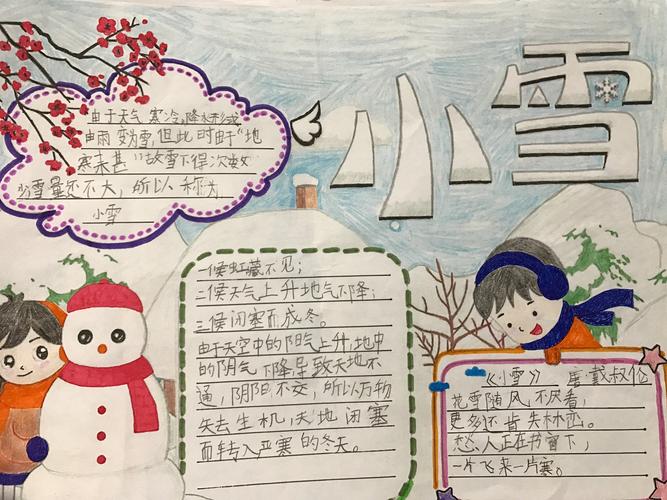 小雪
由于天气寒冷,降水形式
由雨变为雪,但此时由于"地
寒未甚"故雪下得次数
少,雪量还不大,所以称为
小雪
一候虹藏不见;
二候天气上升地气下降;
三候闭塞而成冬。
由于天空中的阳气上升,地中
的阴气下降,导致天地不
通,阴阳不交,所以万物
失去生机,天地闭塞
而转入严寒的冬天。
《小雪》 唐 戴叔伦
花雪随风不厌看,
更多还肯失林峦。
愁人正在书窗下,
一片飞来一片寒。